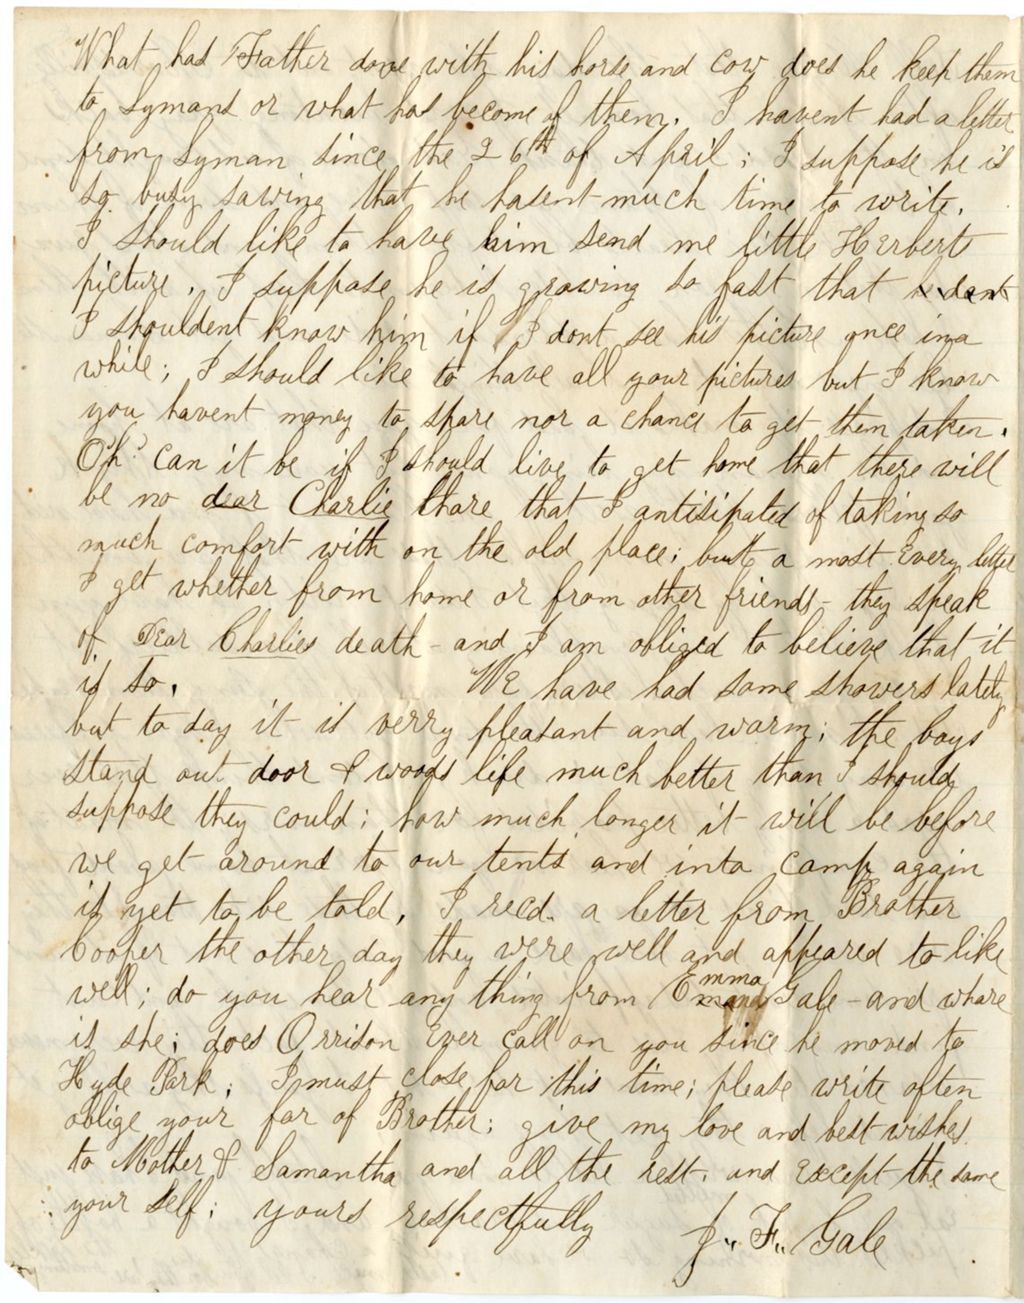 What has Father done with his horse and cow does he keep them
to Lymans or what has become of them. I havent had a letter
from Lyman since the 26th of April; I suppose he is
so busy sawing that he hasent much time to write.
I should like to have him send me little Herberts
picture. I suppose he is growing so fast that he dont
I shouldent know him if I dont see his picture once in a
while; I should like to have all your pictures but I know
you havent money to spare nor a chance to get them taken.
Oh! can it be if I should live to get home that there will
be no dear Charlie thare that I antisipated of taking so
much comfort with on the old place; but a most Every letter
I get whether from home or from other friends - they speak
of Dear Charlies death - and I am obliged to believe that it
is so. We have had some showers lately
but to day it is verry pleasant and warm; the boys
stand out door & woods life much better than I should
suppose they could; how much longer it will be before
we get around to our tents and into camp again
is yet to be told. I recd. a letter from Brother
Cooper the other day they were well and appeared to like
well; do you hear any thing from Emma Gale - and whare
is she; does Orrison Ever call on you since he moved to
Hyde Park; I must close for this time; please write often
oblige your far of Brother; give my love and best wishes
to Mother & Samantha and all the rest. and Except the same
your Self; yours respectfully
J. F. Gale